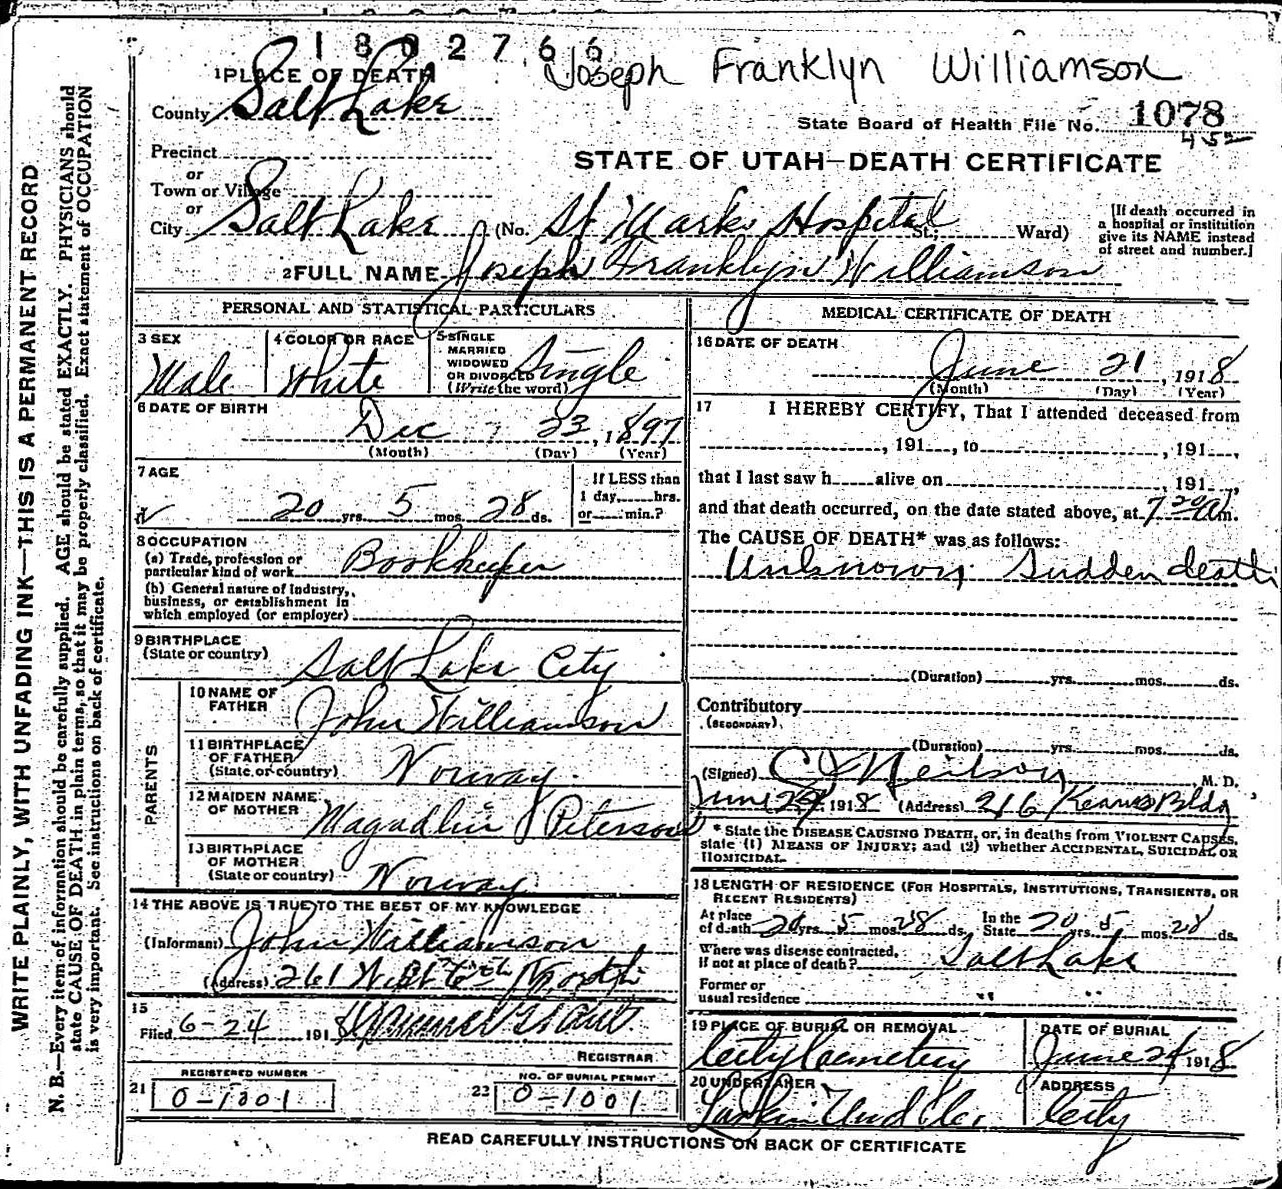 1802766
Joseph Franklyn Williamson
1 PLACE OF DEATH
County Salt Lake
State Board of Health File No. 1078
452
Precinct
or
Town or Village
or
City Salt Lake (No. St Marks Hospital St; Ward)
STATE OF UTAH—DEATH CERTIFICATE
[If death occurred in
a hospital or institution
give its NAME instead
of street and number.]
2 FULL NAME Joseph Franklyn Williamson
PERSONAL AND STATISTICAL PARTICULARS
3 SEX
Male
4 COLOR OR RACE
White
5 SINGLE
MARRIED
WIDOWED
OR DIVORCED
(Write the word)
Single
6 DATE OF BIRTH
Dec 23, 1897
(Month) (Day) (Year)
7 AGE
20 yrs. 5 mos. 28 ds.
If LESS than
1 day, hrs.
or min.?
8 OCCUPATION
(a) Trade, profession or
particular kind of work Bookkeeper
(b) General nature of industry,
business, or establishment in
which employed (or employer)
9 BIRTHPLACE
(State or country)
Salt Lake City
PARENTS
10 NAME OF
FATHER
John Williamson
11 BIRTHPLACE
OF FATHER
(State or country) Norway
12 MAIDEN NAME
OF MOTHER Magadlin Peterson
13 BIRTHPLACE
OF MOTHER
(State or country) Norway
14 THE ABOVE IS TRUE TO THE BEST OF MY KNOWLEDGE
(Informant) John Williamson
(Address) 261 West 6th North
15
Filed 6-24 1918
REGISTRAR
REGISTERED NUMBER
21 0-1001
NO. OF BURIAL PERMIT
22 0-1001
MEDICAL CERTIFICATE OF DEATH
16 DATE OF DEATH
June 21, 1918
(Month) (Day) (Year)
17 I HEREBY CERTIFY, That I attended deceased from
, 191 , to , 191 ,
that I last saw h alive on , 191 ,
and that death occurred, on the date stated above, at 7 20 a m.
The CAUSE OF DEATH* was as follows:
Unknown Sudden death
(Duration) yrs. mos. ds.
Contributory
(SECONDARY)
(Duration) yrs. mos. ds.
(Signed) C J Neilson M. D.
June 24, 1918 (Address) 216 Kearns Bldg
* State the DISEASE CAUSING DEATH, or, in deaths from VIOLENT CAUSES,
state (1) MEANS OF INJURY; and (2) whether ACCIDENTAL, SUICIDAL OR
HOMICIDAL.
18 LENGTH OF RESIDENCE (FOR HOSPITALS, INSTITUTIONS, TRANSIENTS, OR
RECENT RESIDENTS)
At place
of death 20 yrs. 5 mos. 28 ds. In the
State 20 yrs. 5 mos. 28 ds.
Where was disease contracted,
if not at place of death? Salt Lake
Former or
usual residence " "
19 PLACE OF BURIAL OR REMOVAL
City Cemetery
DATE OF BURIAL
June 24 1918
20 UNDERTAKER
Larkin Und Co.
ADDRESS
City
READ CAREFULLY INSTRUCTIONS ON BACK OF CERTIFICATE
WRITE PLAINLY, WITH UNFADING INK—THIS IS A PERMANENT RECORD
N. B.—Every item of information should be carefully supplied. AGE should be stated EXACTLY. PHYSICIANS should
state CAUSE OF DEATH in plain terms, so that it may be properly classified. Exact statement of OCCUPATION
is very important. See instructions on back of certificate.